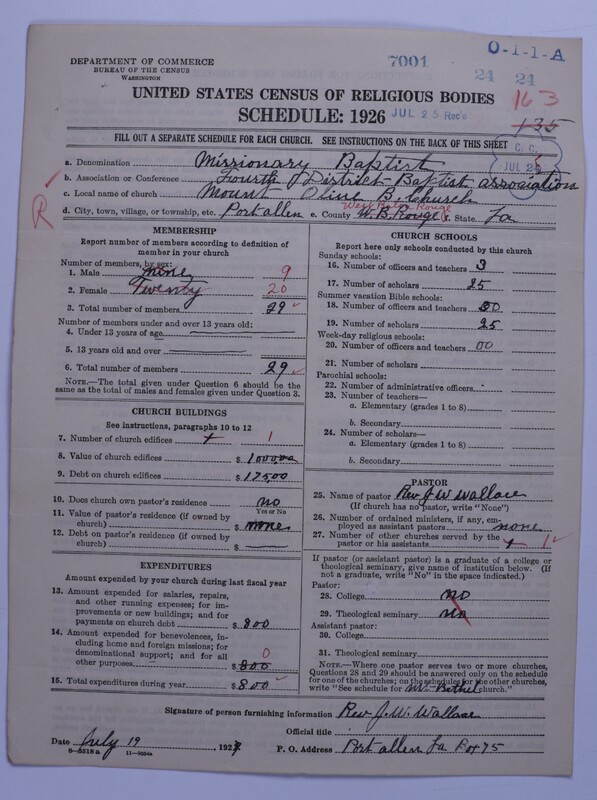 O-1-1-A
7001
24 24
DEPARTMENT OF COMMERCE
BUREAU OF THE CENSUS
WASHINGTON
UNITED STATES CENSUS OF RELIGIOUS BODIES
163
SCHEDULE: 1926
JUL 25 Rec'd
135
FILL OUT A SEPARATE SCHEDULE FOR EACH CHURCH. SEE INSTRUCTIONS ON THE BACK OF THIS SHEET
C. C.
JUL 25
a. Denomination Missionary Baptist
b. Association or Conference Fourth District Baptist association
c. Local name of church Mount Olive B. Church
R
West Baton Rouge
d. City, town, village, or township, etc. Port allen e. County W. B. Rouge f. State La
MEMBERSHIP
Report number of members according to definition of member in your church
Number of members, by sex:
1. Male nine 9
2. Female Twenty 20
3. Total number of members 29
Number of members under and over 13 years old:
4. Under 13 years of age
5. 13 years old and over
6. Total number of members 29
NOTE.—The total given under Question 6 should be the same as the total of males and females given under Question 3.
CHURCH BUILDINGS
See instructions, paragraphs 10 to 12
7. Number of church edifices 1
8. Value of church edifices $ 1000,00
9. Debt on church edifices $ 175,00
10. Does church own pastor's residence no
Yes or No
11. Value of pastor's residence (if owned by church) $ none
12. Debt on pastor's residence (if owned by church) $
EXPENDITURES
Amount expended by your church during last fiscal year
13. Amount expended for salaries, repairs, and other running expenses; for improvements or new buildings; and for payments on church debt $ 800
14. Amount expended for benevolences, including home and foreign missions; for denominational support; and for all other purposes 0 $ 800
15. Total expenditures during year $ 800
CHURCH SCHOOLS
Report here only schools conducted by this church
Sunday schools:
16. Number of officers and teachers 3
17. Number of scholars 25
Summer vacation Bible schools:
18. Number of officers and teachers 00
19. Number of scholars 25
Week-day religious schools:
20. Number of officers and teachers 00
21. Number of scholars
Parochial schools:
22. Number of administrative officers
23. Number of teachers—
a. Elementary (grades 1 to 8)
b. Secondary
24. Number of scholars—
a. Elementary (grades 1 to 8)
b. Secondary
PASTOR
25. Name of pastor Rev J. W. Wallace
(If church has no pastor, write "None")
26. Number of ordained ministers, if any, employed as assistant pastors none
27. Number of other churches served by the pastor or his assistants 1
If pastor (or assistant pastor) is a graduate of a college or theological seminary, give name of institution below. (If not a graduate, write "No" in the space indicated.)
Pastor:
28. College no
29. Theological seminary no
Assistant pastor:
30. College
31. Theological seminary
NOTE.—Where one pastor serves two or more churches, Questions 28 and 29 should be answered only on the schedule for one of the churches; on the schedules for the other churches, write "See schedule for Mt. Bethel church."
Signature of person furnishing information Rev. J. W. Wallace
Official title
Date July 19, 1927
P. O. Address Port allen La Box 75
8—5318a 11—9034a